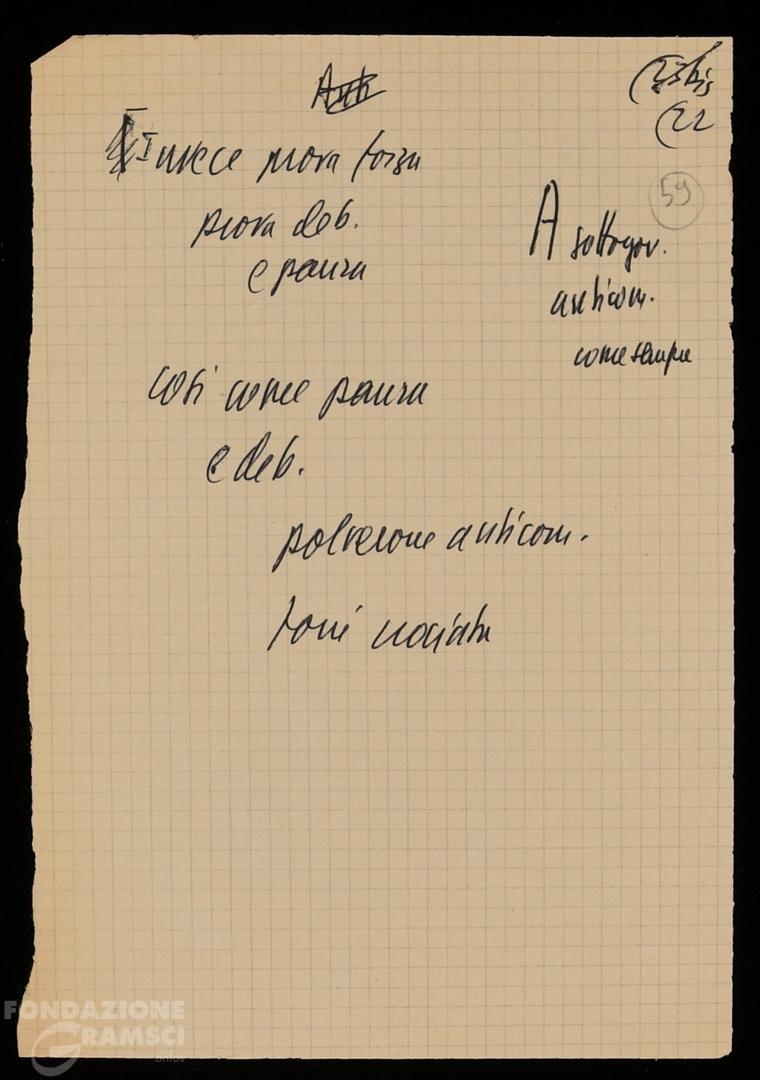 (23 bis
(22
59
Invece prova forza
prova deb.
e paura
A sottogov.
anticom.
come sempre
così come paura
e deb.
polverone anticom.
toni
FONDAZIONE
GRAMSCI
onlus